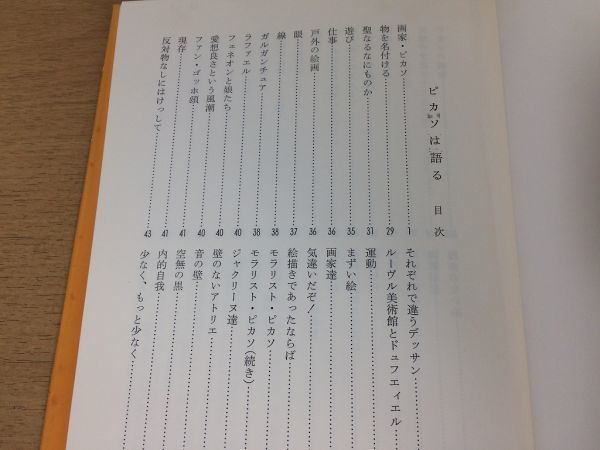 ピカソは語る 目次
画家・ピカソ 1
物を名付ける 29
聖なるなにものか 31
遊び 35
仕事 36
戸外の絵画 36
眼 37
線 38
ガルガンチュア 38
ラファエル 40
フェネオンと娘たち 40
愛想良さという風潮 40
ファン・ゴッホ頌 41
現存 41
反対物なしにはけっして 43
それぞれで違うデッサン
ルーヴル美術館とドュフェイエル
運動
まずい絵
画家達
気違いだぞ!
絵描きであったならば
モラリスト・ピカソ
モラリスト・ピカソ(続き)
ジャクリーヌ達
壁のないアトリエ
音の壁
空無の黒
内的自我
少なく、もっと少なく